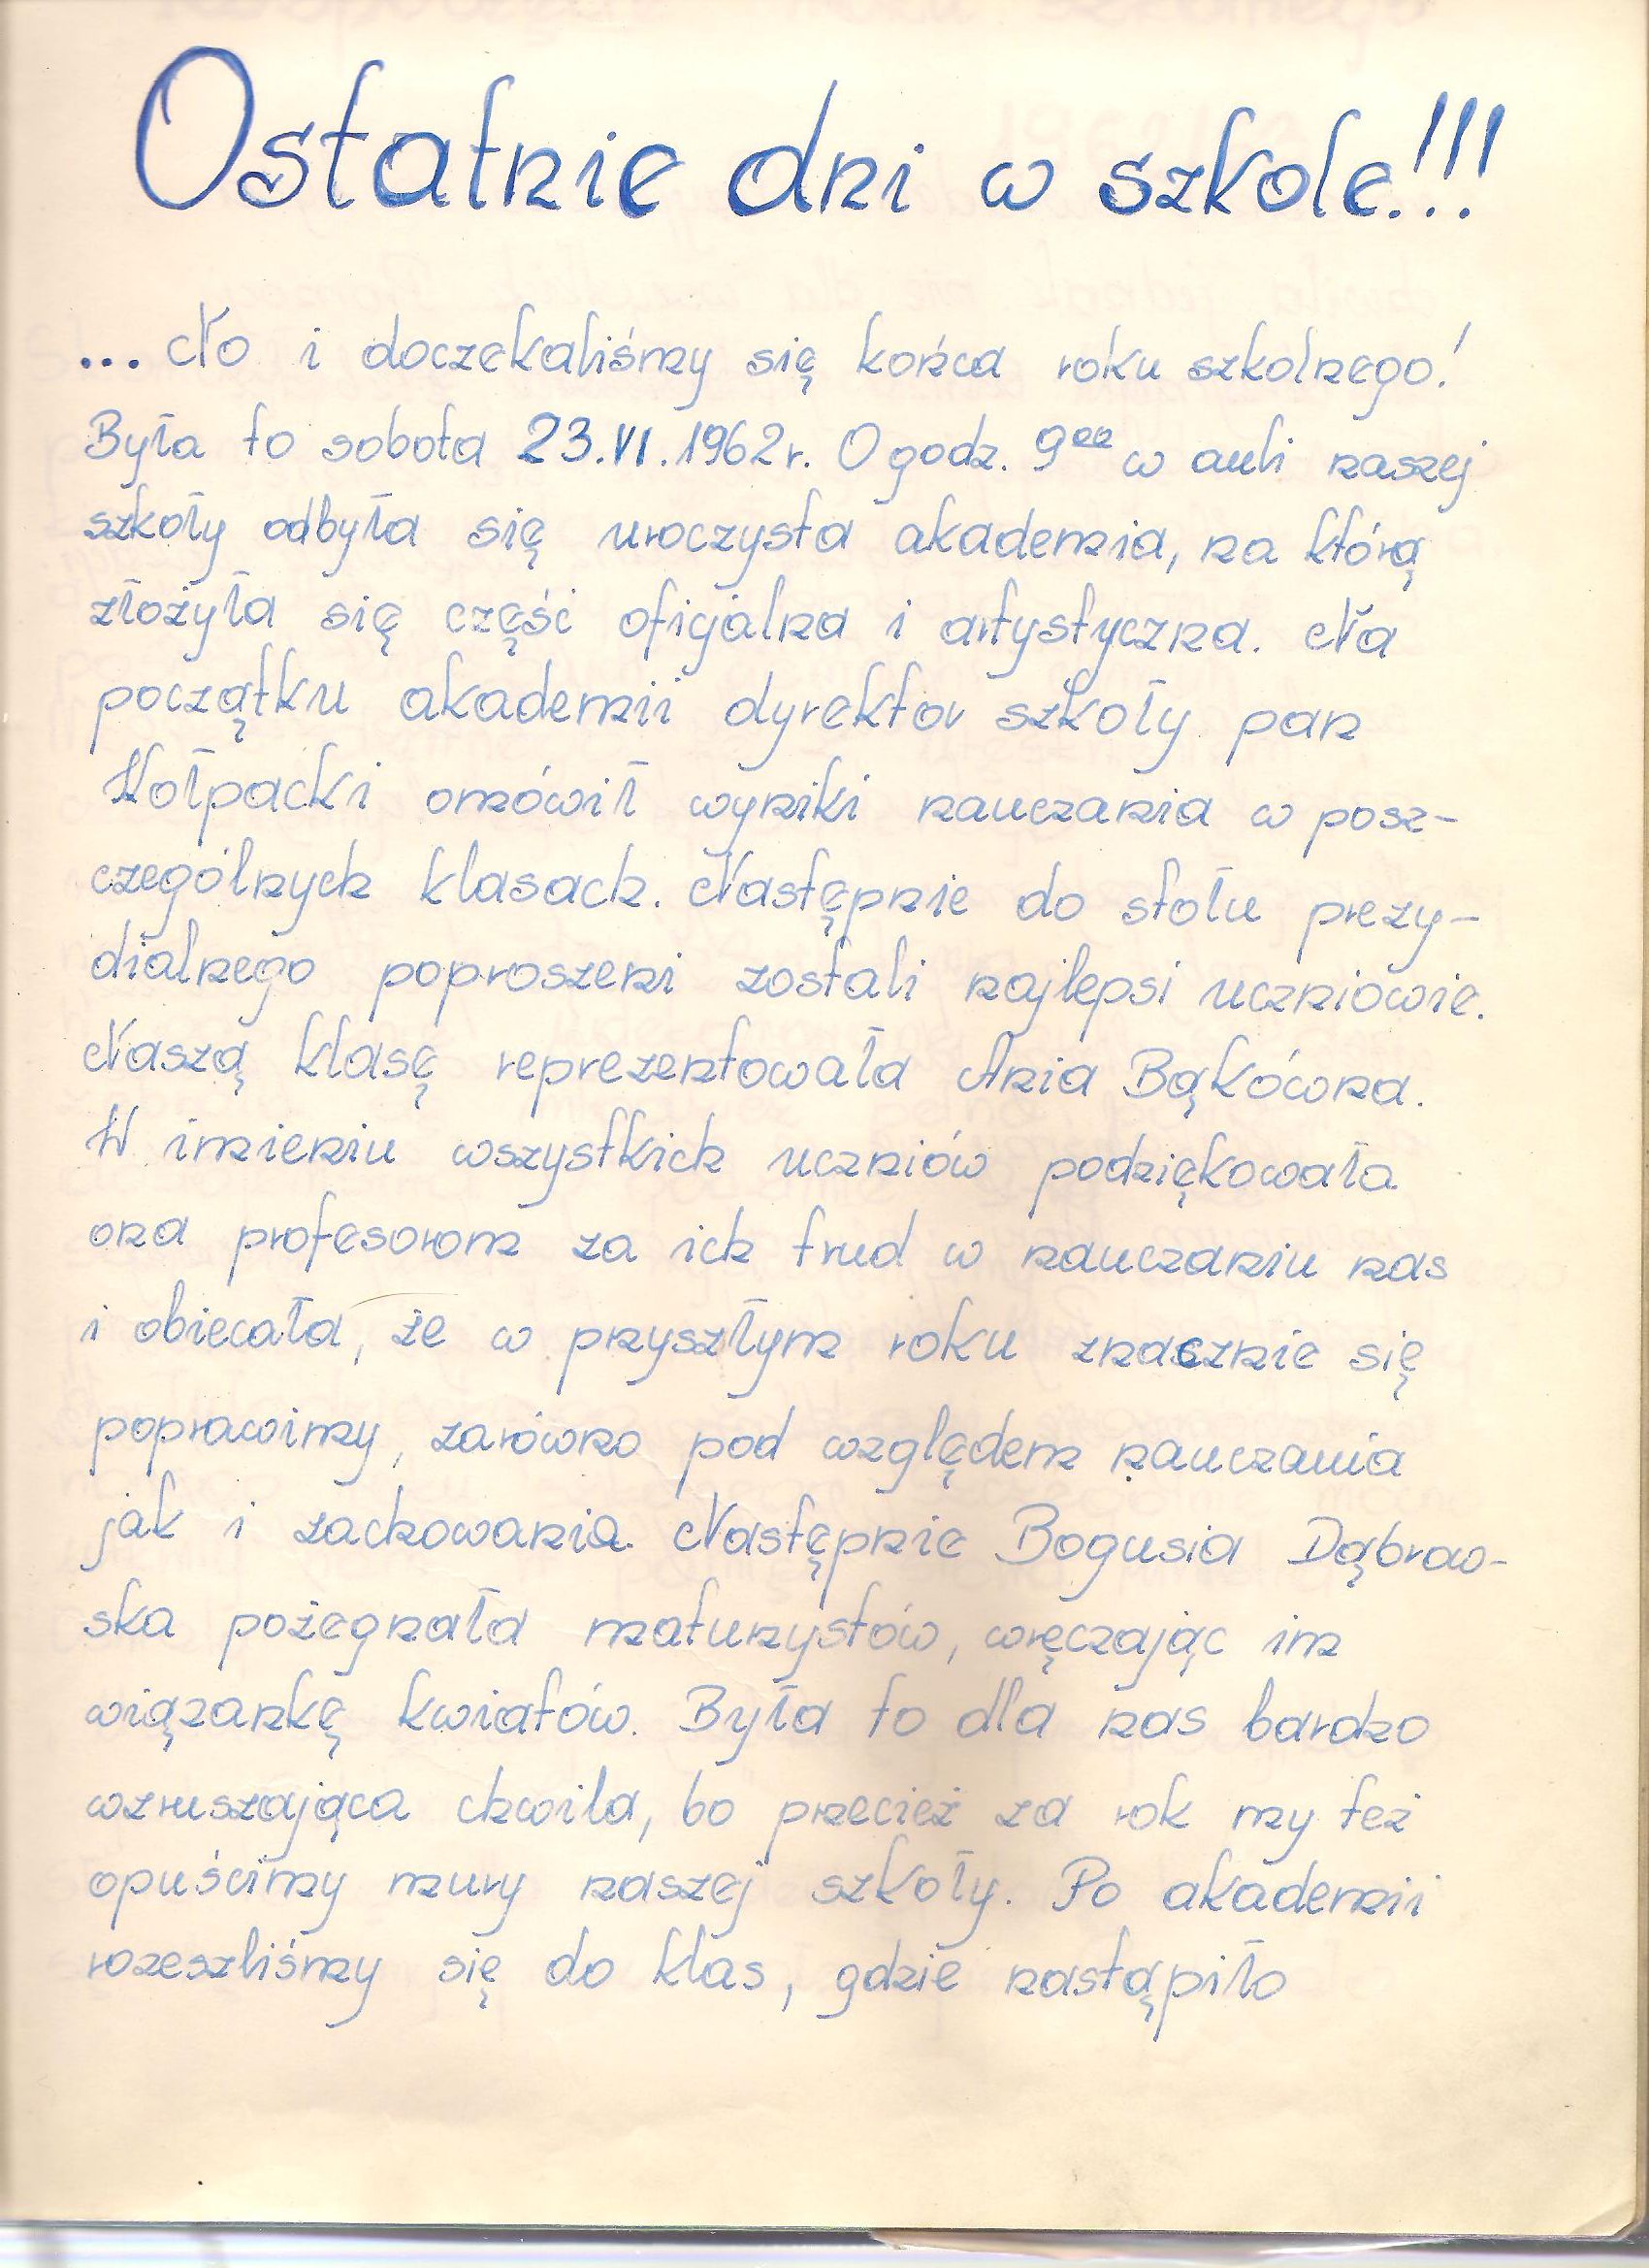 Ostatnie dni w szkole!!!
... No i doczekaliśmy się końca roku szkolnego!
Była to sobota 23.VI.1962r. O godz. 9⁰⁰ w auli naszej
szkoły odbyła się uroczysta akademia, na którą
złożyła się część oficjalna i artystyczna. Na
początku akademii dyrektor szkoły pan
Wołpacki omówił wyniki nauczania w posz-
czególnych klasach. Następnie do stołu prezy-
dialnego poproszeni zostali najlepsi uczniowie.
Naszą klasę reprezentowała Ania Bąkówna.
W imieniu wszystkich uczniów podziękowała
ona profesorom za ich trud w nauczaniu nas
i obiecała, że w przyszłym roku znacznie się
poprawimy, zarówno pod względem nauczania
jak i zachowania. Następnie Bogusia Dąbrow-
ska pożegnała maturzystów, wręczając im
wiązankę kwiatów. Była to dla nas bardzo
wzruszająca chwila, bo przecież za rok my też
opuścimy mury naszej szkoły. Po akademii
rozeszliśmy się do klas, gdzie nastąpiło